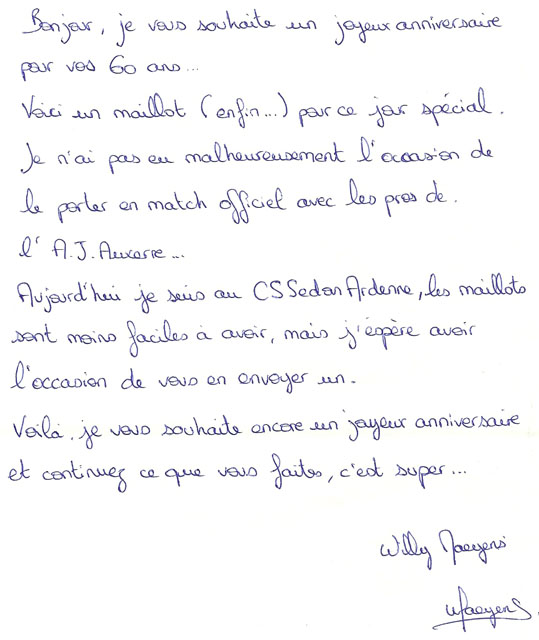 Bonjour, je vous souhaite un joyeux anniversaire
pour vos 60 ans...
Voici un maillot (enfin...) pour ce jour spécial.
Je n'ai pas eu malheureusement l'occasion de
le porter en match officiel avec les pros de.
l'A.J.Auxerre...
Aujourd'hui je suis au CSSedan Ardenne, les maillots
sont moins faciles à avoir, mais j'éspère avoir
l'occasion de vous en envoyer un.
Voilà, je vous souhaite encore un joyeux anniversaire
et continuez ce que vous faites, c'est super...
Willy